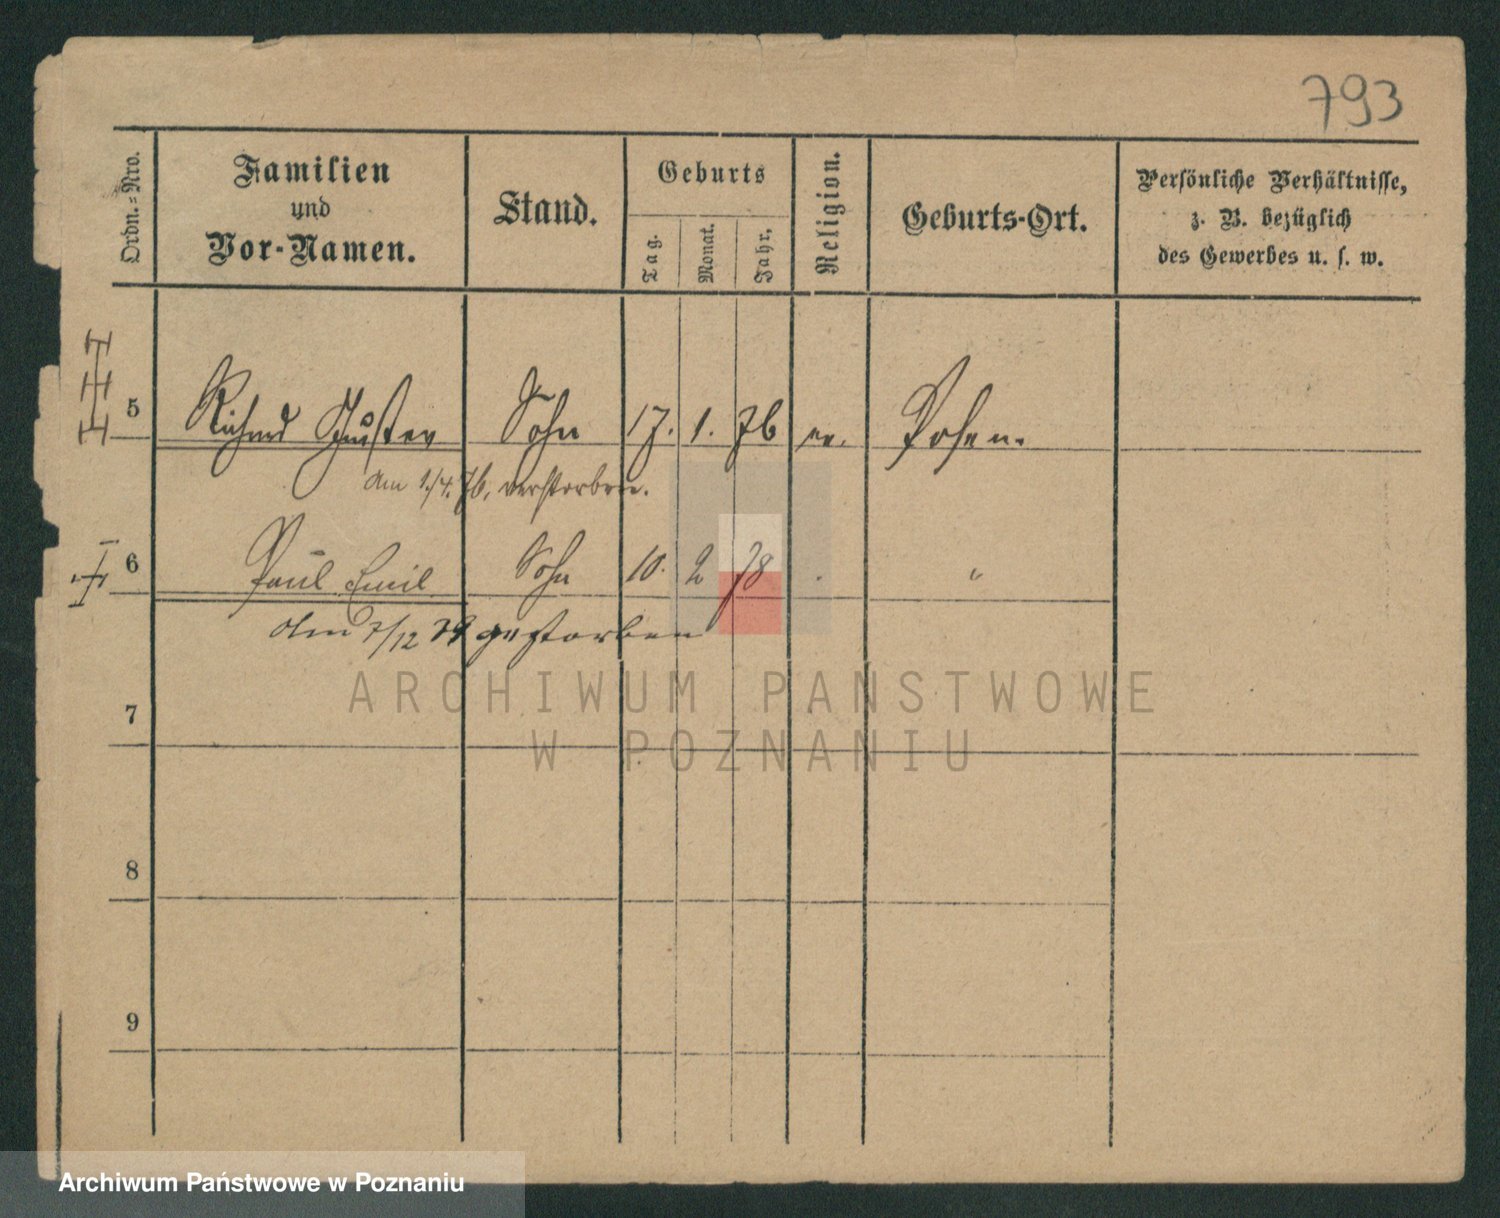 793
Ordn.-Nro.
Familien
und
Vor-Namen.
Stand.
Geburts
Tag.
Monat.
Jahr.
Religion.
Geburts-Ort.
Persönliche Verhältnisse,
z. B. bezüglich
des Gewerbes u. s. w.
5 Richard Gustav Sohn 17. 1. 76 ev. Posen.
am 1./4. 76, verstorben.
6 Paul Emil Sohn 10. 2 78 "
Am 7/12 79 gestorben
ARCHIWUM PAŃSTWOWE
W POZNANIU
7
8
9
Archiwum Państwowe w Poznaniu